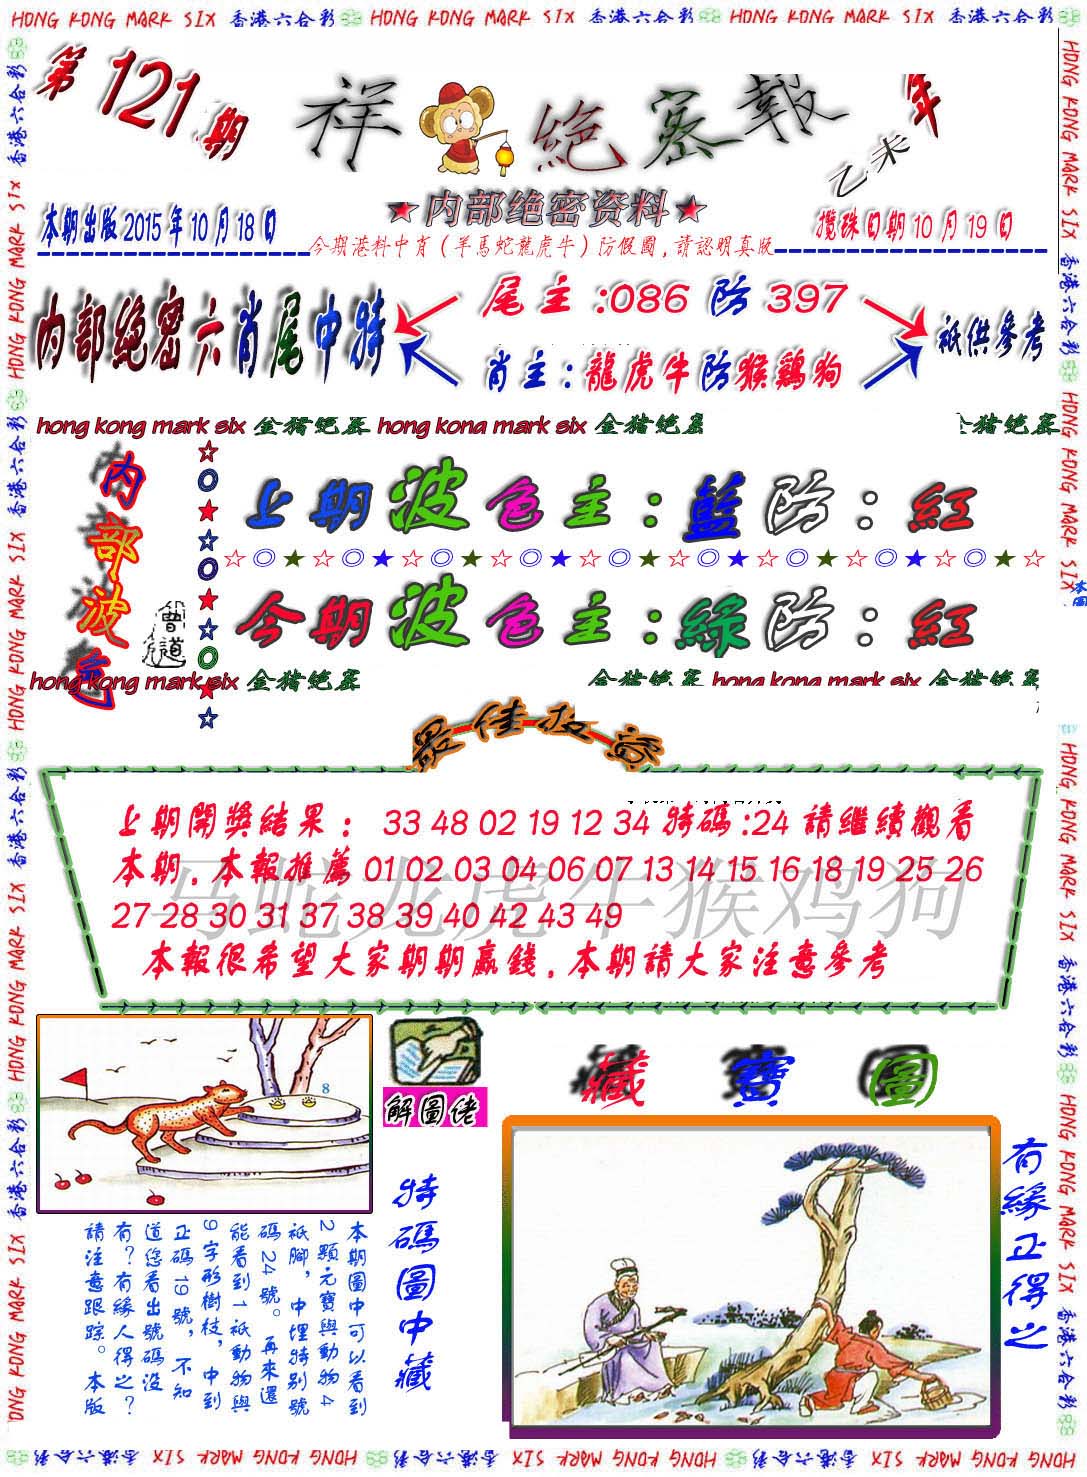 HONG KONG MARK SIX 香港六合彩 HONG KONG MARK SIX 香港六合彩 HONG KONG MARK SIX 香港六合彩
第121期
祥 絕密報
乙未年
★内部绝密资料★
本期出版2015年10月18日
攪珠日期10月19日
今期港料中肖(羊馬蛇龍虎牛)防假圖,請認明真版
内部绝密六肖尾中特
尾主:086防397
肖主:龍虎牛防猴鷄狗
祇供參考
hong kong mark six 金猪绝密 hong kong mark six 金猪绝密
金猪绝密
内部波色
曾道人
上期波色主:藍防:紅
☆◎★☆◎★☆◎★☆◎★☆◎★☆◎★☆◎★☆◎★☆◎★☆
今期波色主:綠防:紅
hong kong mark six 金猪绝密
金猪绝密 hong kong mark six 金猪绝密
最佳投资
上期開獎結果: 33 48 02 19 12 34 特碼:24 請繼續觀看
本期.本報推薦 01 02 03 04 06 07 13 14 15 16 18 19 25 26
27 28 30 31 37 38 39 40 42 43 49
马蛇龙虎牛猴鸡狗
本報很希望大家期期贏錢.本期請大家注意參考
8
解圖佬
藏寶圖
特碼圖中藏
本期圖中可以看到
2顆元寶與動物4
祇腳,中埋特别號
碼24號。再來還
能看到1祇動物與
9字形樹枝,中到
正碼19號,不知
道您看出號碼没
有?有緣人得之?
請注意跟踪。本版
有緣正得之
HONG KONG MARK SIX 香港六合彩 HONG KONG MARK SIX 香港六合彩 HONG KONG MARK SIX 香港六合彩